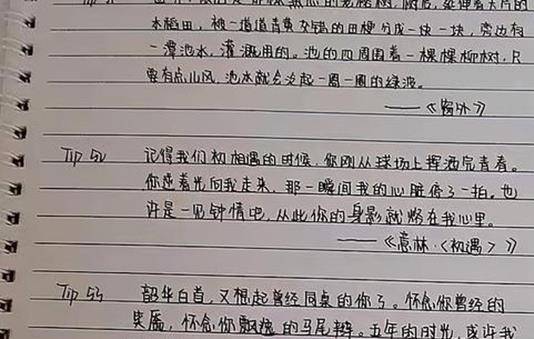 水稻田，被一道道青黄交错的田埂分成一块一块，旁边有
一潭池水，灌溉用的。池的四周围着一棵棵柳树，只
要有点儿风，池水就会泛起一圈一圈的绿波。
——《窗外》
Tip 52 记得我们初相遇的时候，你刚从球场上挥洒完青春。
你逆着光向我走来，那一瞬间我的心脏停了一拍。也
许是一见钟情吧，从此你的身影就烙在我心里。
——《意林·<初遇>》
Tip 53 韶华白首，又想起曾经同桌的你了。怀念你曾经的
笑靥，怀念你飘逸的马尾辫。五年的时光，或许我